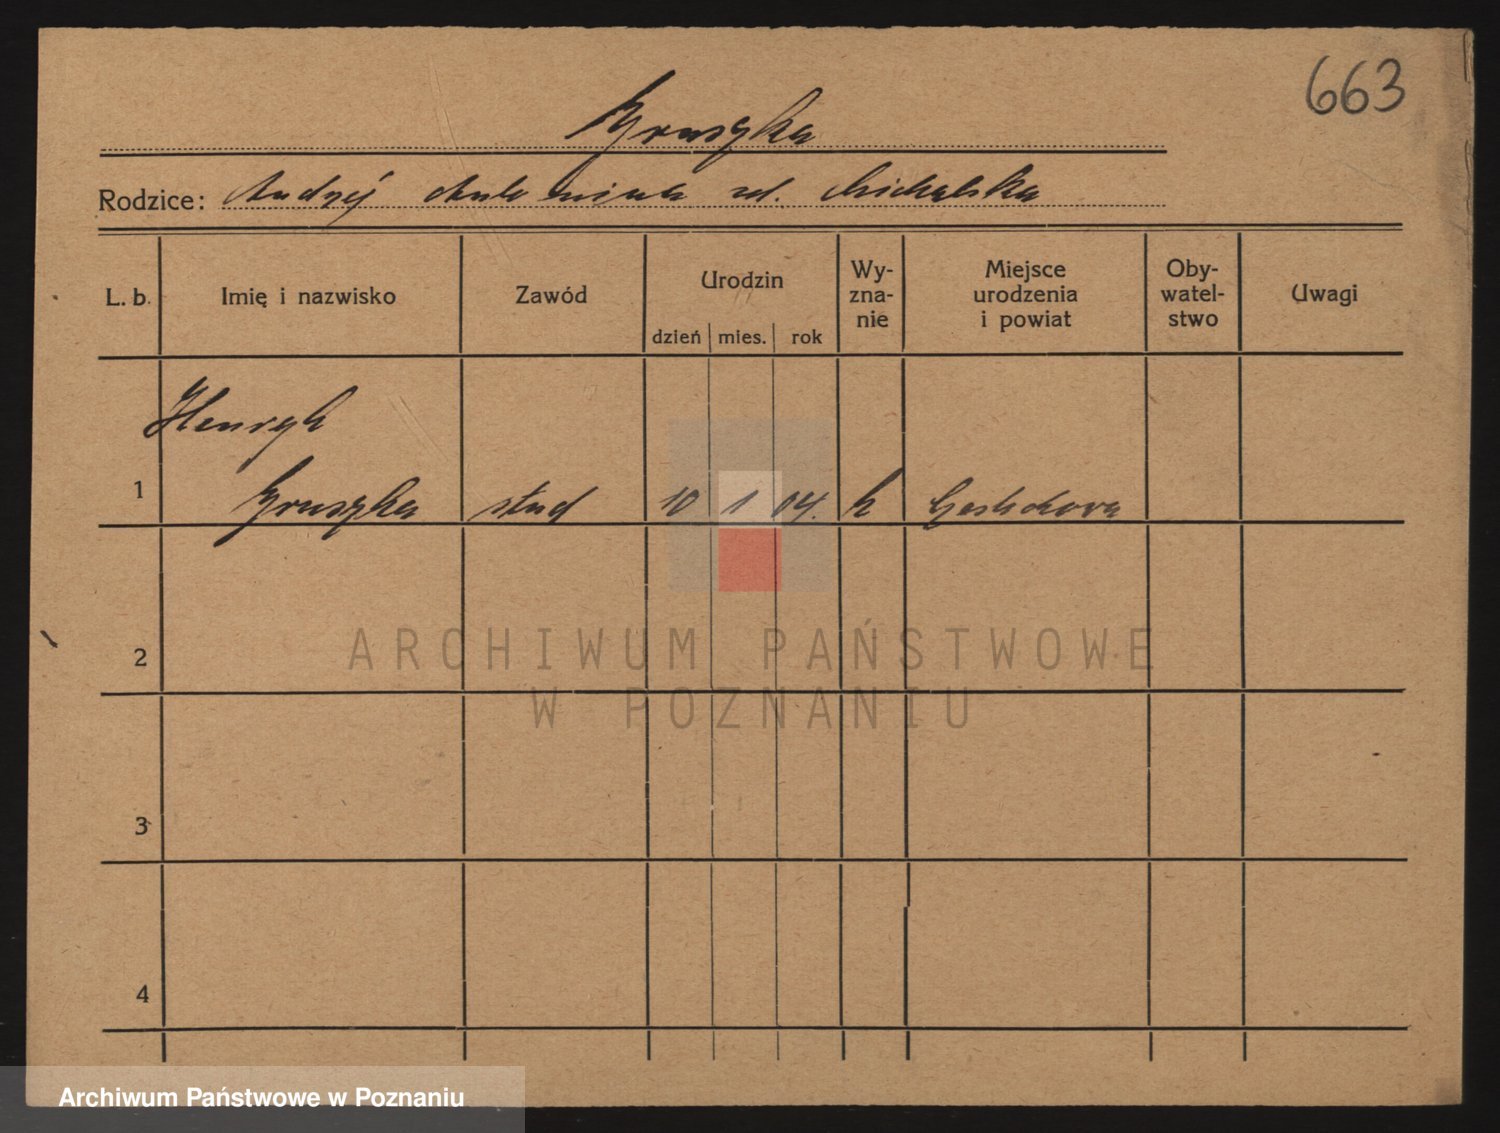 663
Gruszka
Rodzice: Andrzej Antonina zd. Michalska
L. b. Imię i nazwisko Zawód Urodzin dzień mies. rok Wy-zna-nie Miejsce urodzenia i powiat Oby-watel-stwo Uwagi
Henryk
1 Gruszka stud 10 1 04. k
2
3
4
ARCHIWUM PAŃSTWOWE
W POZNANIU
Archiwum Państwowe w Poznaniu